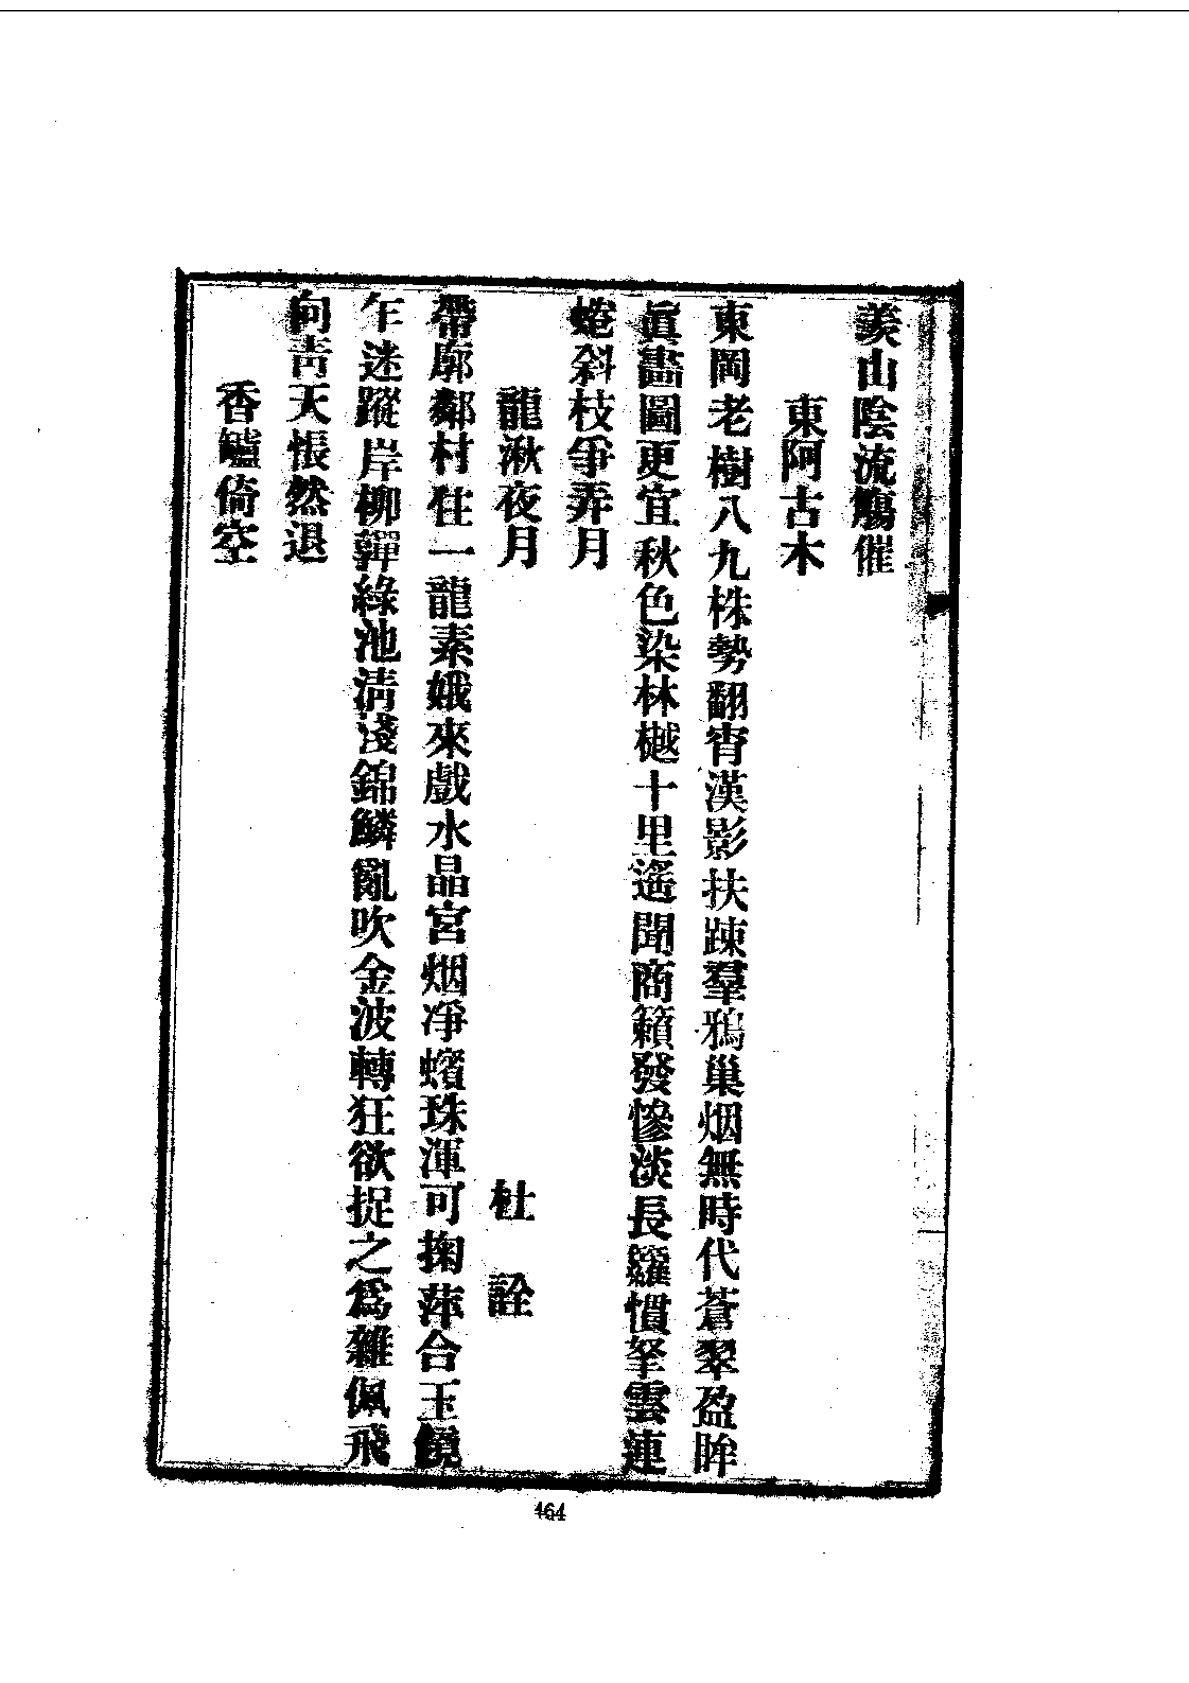 羨山陰流觴催
東阿古木
東岡老樹八九株勢翻霄漢影扶踈羣鴉巢烟無時代蒼翠盈眸
眞畵圖更宜秋色染林樾十里遙聞商籟發慘淡長籮慣拏雲連
蜷斜枝爭弄月
龍湫夜月 杜詮
帶廓鄰村住一龍素娥來戲水晶宮烟凈蠙珠渾可掬萍合玉鏡
乍迷蹤岸柳嚲綠池淸淺錦鱗亂吹金波轉狂欲捉之爲雜佩飛
向靑天悵然退
香鑪倚空
464